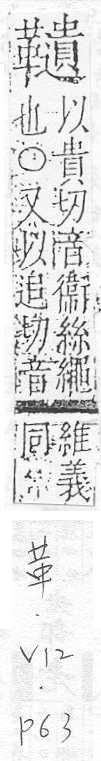 以貴切音衛絲繩
也○又以追切音
維義
同
革
.
V12
.
P63